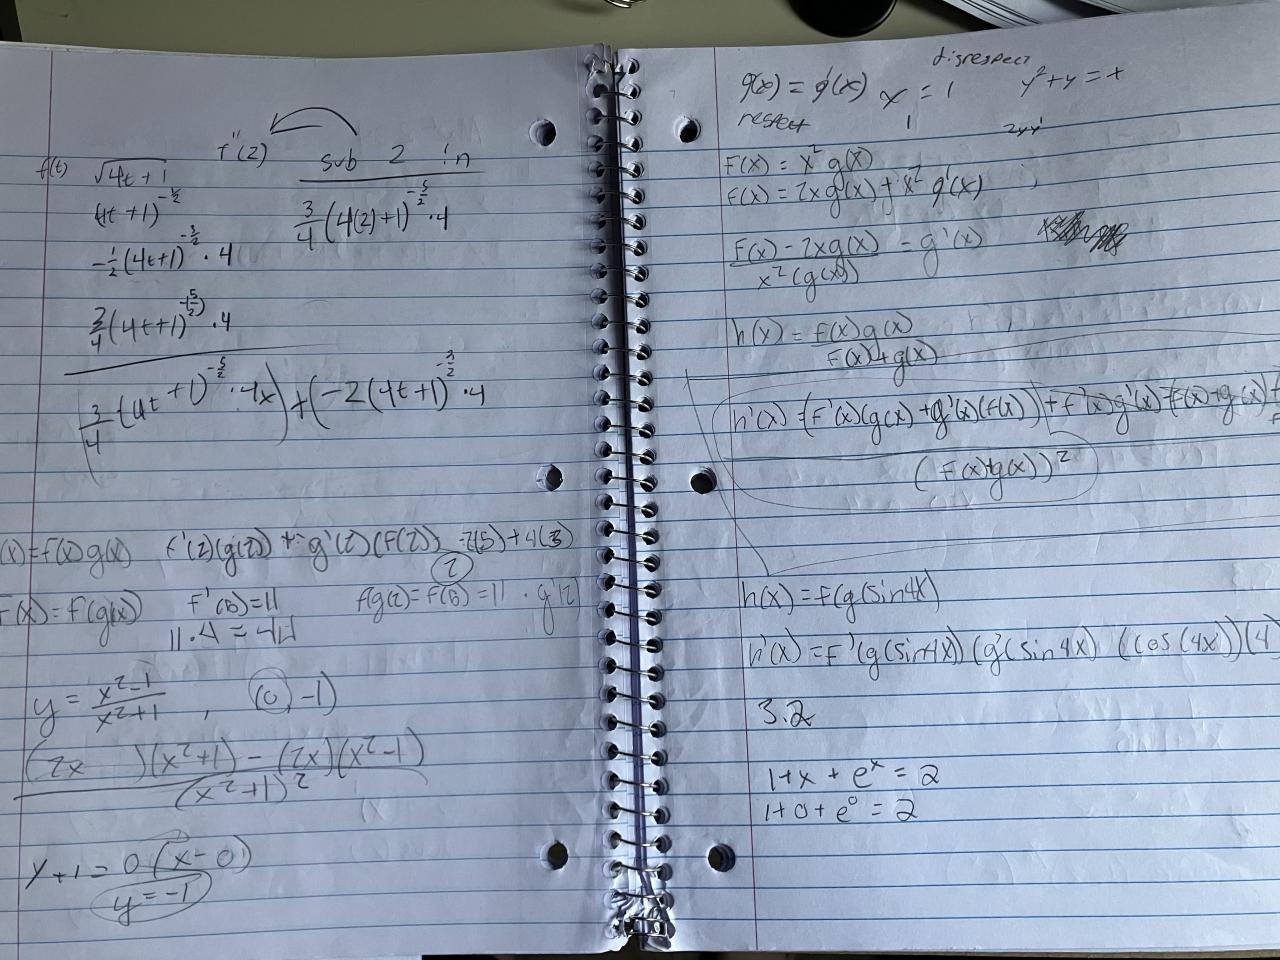 f''(2)
sub 2 in
f(t) √4t+1
(4t+1)^-1/2
-1/2(4t+1)^-3/2 · 4
3/4(4(2)+1)^-5/2 · 4
3/4(4t+1)^-(5/2) · 4
3/4(4t+1)^-5/2 · 4x)+(-2(4t+1)^-3/2 · 4
(x)=f(x)g(x) f'(2)(g(2)) + g'(2)(f(2)) -2(5)+4(3)
2
F(x)=f(g(x)) f'(5)=11 f(g(2)=f(5)=11 · g'(2)
11·4=44
y = x²-1/x²+1 , (0,-1)
(2x )(x²+1) - (2x)(x²-1)
(x²+1)²
y+1=0(x-0)
y=-1
disrespect
g(x) = g'(x) x = 1 y²+y=x
respect 1 2yy'
F(x) = x² g(x)
F(x) = 2x g(x) + x² g'(x)
F(x) - 2xg(x) = g'(x)
x²(g(x))
h(x) = f(x)g(x)
F(x)+g(x)
h'(x) = (f'(x)(g(x)+g'(x)(f(x)) + f'(x)g'(x) (f(x)+g(x)
(F(x)+g(x))²
h(x)=f(g(sin4x)
h'(x)=f'(g(sin4x))(g'(sin4x) (cos(4x))(4)
3.2
1+x+e^x = 2
1+0+e^0 = 2